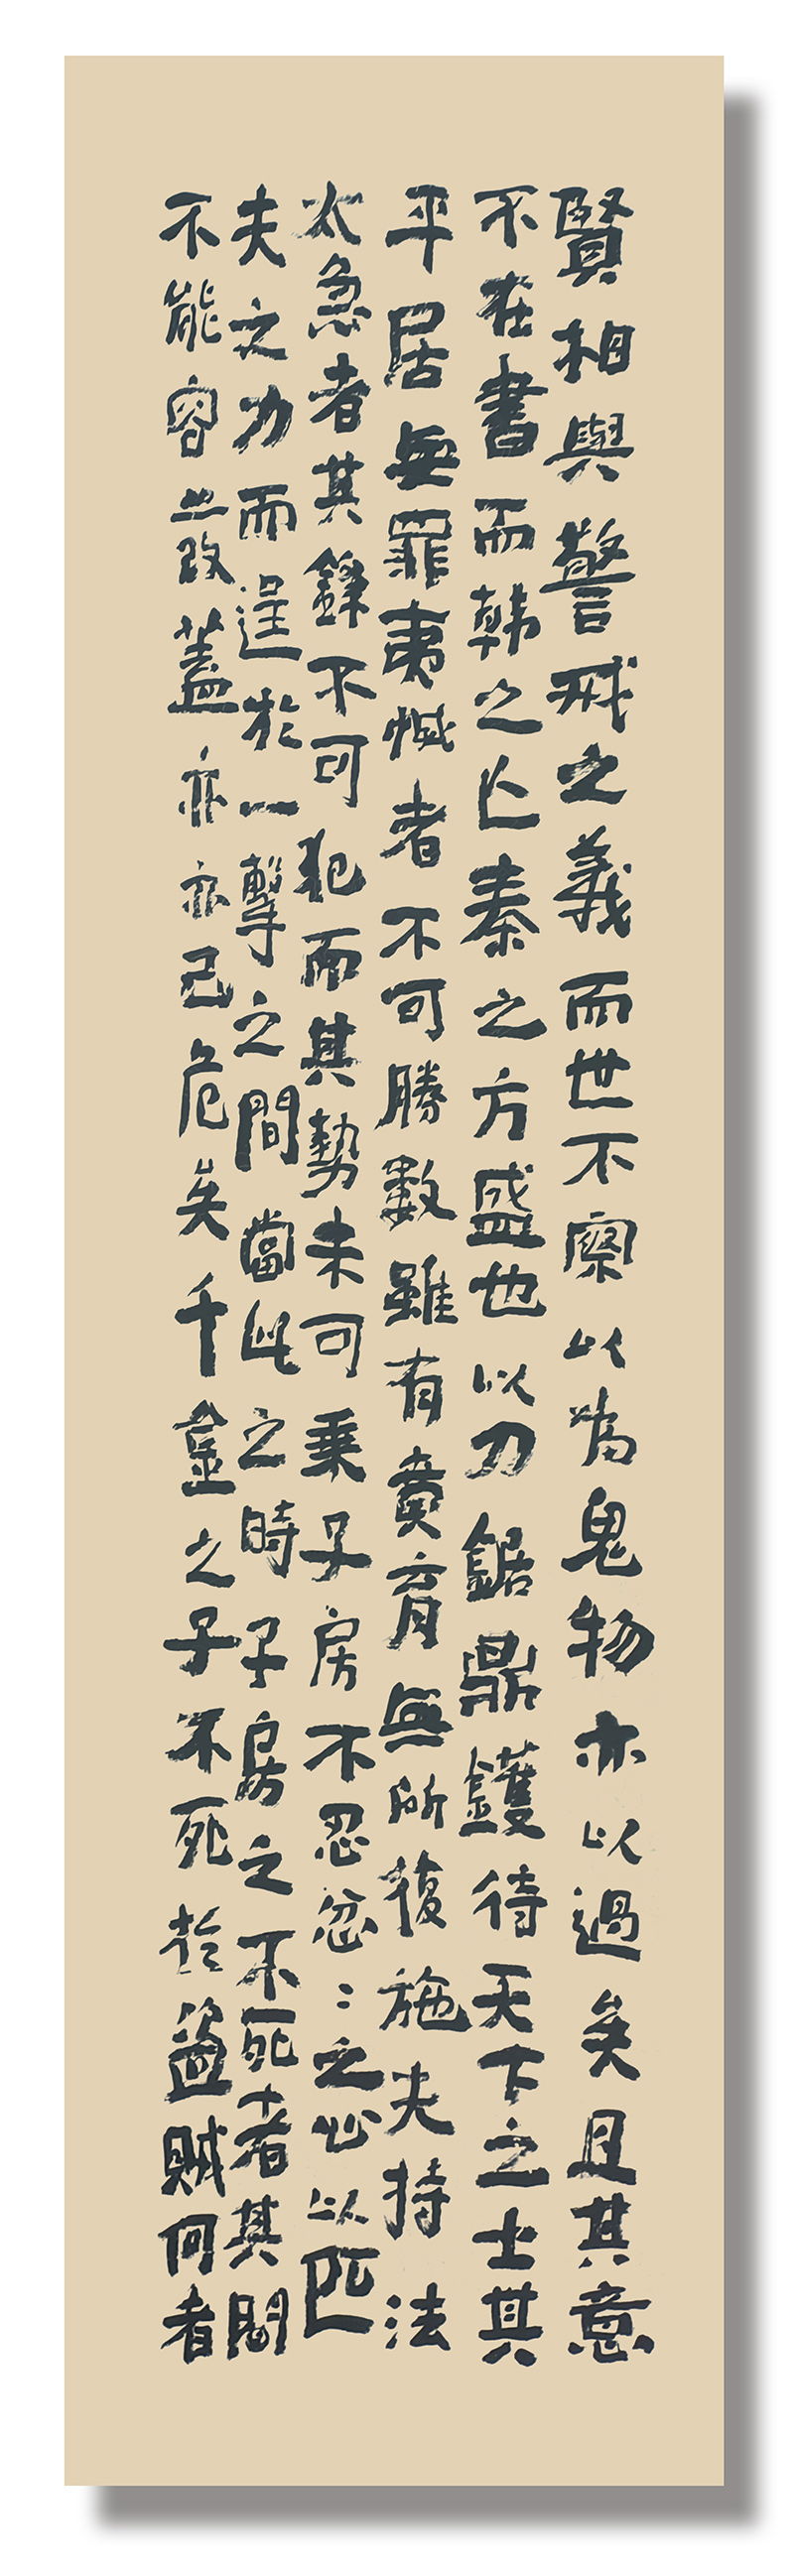 賢相與警戒之義而世不察以為鬼物亦以過矣且其意
不在書而韩之亡秦之方盛也以刀鋸鼎鑊待天下之士其
平居無罪夷憾者不可勝數雖有賁育無所復施夫持法
太急者其鋒不可犯而其勢未可乗子房不忍忿:之心以匹
夫之力而逞於一擊之間當此之時子房之不死者其間
不能容髮蓋亦亦己危矣千金之子不死於盜賊何者